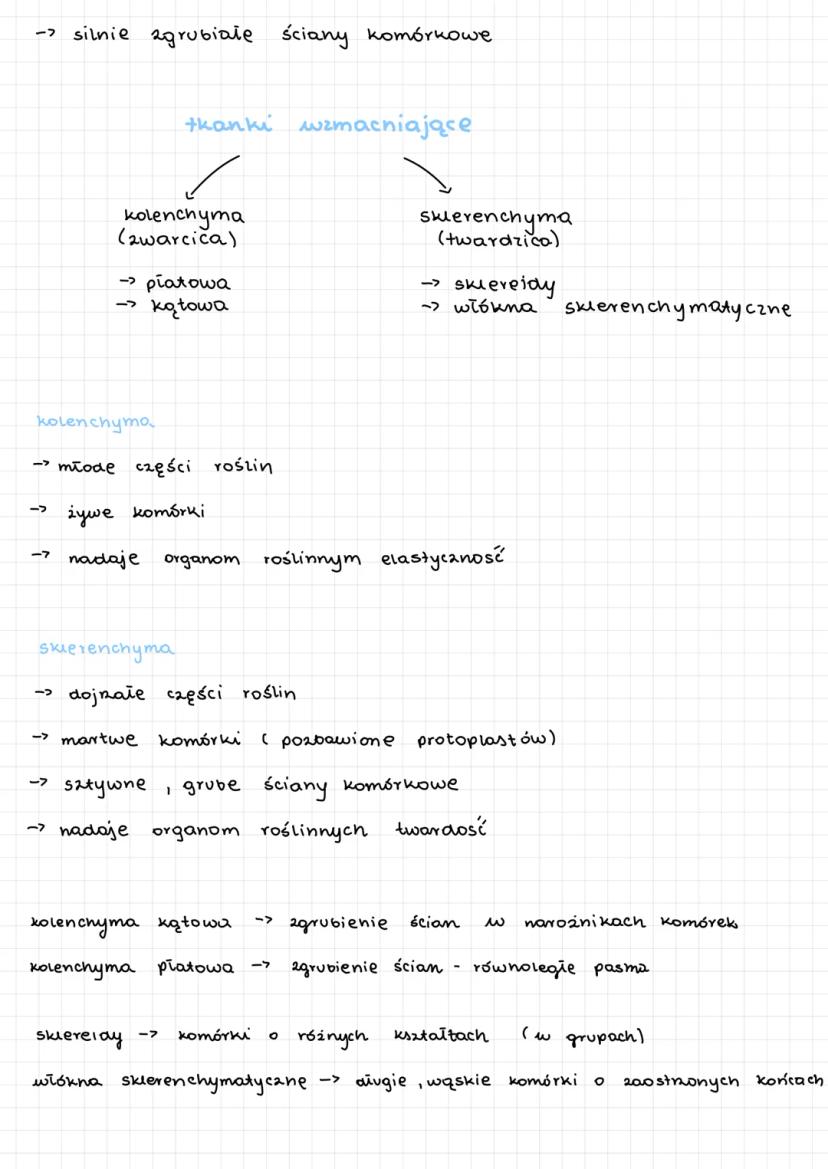 -> silnie zgrubiałe ściany komórkowe
tkanki wzmacniające
kolenchyma
(zwarcica)
-> płatowa
-> kątowa
sklerenchyma
(twardzica)
-> sklereidy
-> włókna sklerenchymatyczne
kolenchyma
-> młode części roślin
-> żywe komórki
-> nadaje organom roślinnym elastyczność
sklerenchyma
-> dojrzałe części roślin
-> martwe komórki (pozbawione protoplastów)
-> sztywne, grube ściany komórkowe
-> nadaje organom roślinnych twardość
kolenchyma kątowa -> zgrubienie ścian w narożnikach komórek
kolenchyma płatowa -> zgrubienie ścian - równoległe pasma
sklereidy -> komórki o różnych kształtach (w grupach)
włókna sklerenchymatyczne -> długie, wąskie komórki o zaostrzonych końcach